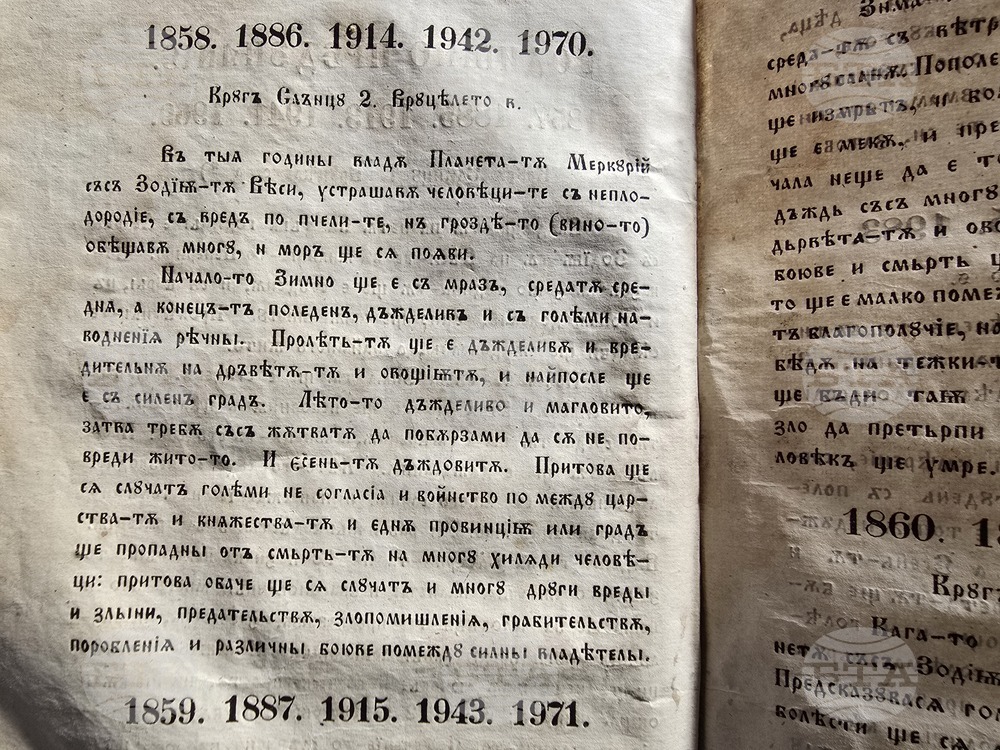 1858. 1886. 1914. 1942. 1970.
Крꙋгъ Слънцꙋ 2. Врꙋцѣлето в.
Въ тыя годины владѫ Планета-тѫ Меркꙋрїй
със Зодїѭ-тѫ Вѣси, устрашавѫ человѣци-те съ непло-
дородіе, съ вредъ по пчели-те, нъ гроздѣ-то (вино-то)
обѣщавѫ многꙋ, и моръ ще сѧ появи.
Начало-то Зимно ще є съ мразъ, средатѫ сре-
дна, а конецъ-тъ поледенъ, дъжделивъ и съ голѣми на-
водненїѧ рѣчны. Пролѣть-тѫ ще є дъжделивѫ и вре-
дительнѫ на дръвѣтѫ-тѫ и овощіѭтѫ, и найпосле ще
є съ силенъ градъ. Лѣто-то дъжделиво и магловито,
затва требѫ със жѫтватѫ да побѫрзами да сѧ не по-
вреди жито-то. И єсень-тѫ дъждовитѫ. Притова ще
сѧ слꙋчатъ голѣми не согласіа и войнство по междꙋ цар-
ства-тѫ и княжества-тѫ и єднѫ провинціѭ или градъ
ще пропадны отъ смьрть-тѫ на многꙋ хиляди человѣ-
ци: притова обаче ще сѧ слꙋчатъ и многꙋ дрꙋги вреды
и злыни, предательствѫ, злопомишленїѧ, грабительствѫ,
поробленїѧ и различны боюве помеждꙋ силны владѣтелы.
1859. 1887. 1915. 1943. 1971.
дѣца,
среда-тѫ съ вѣтр
Пополе
ще
ще є мекѫ, и пре
чала неще да є т
дъждь със многꙋ
дьрвѣта-тѫ и ово
боюве и смьрть
то ще є малко помеж
тъ благополꙋчіе, на
бѣдѫ на тежки
ще бъди
зло да претьрпи
ловѣкъ ще умре.
1860.
Крꙋг
Кага-то
нетѫ със Зодїѭ
Предсказꙋвасѧ го
болѣсти ще сѧ